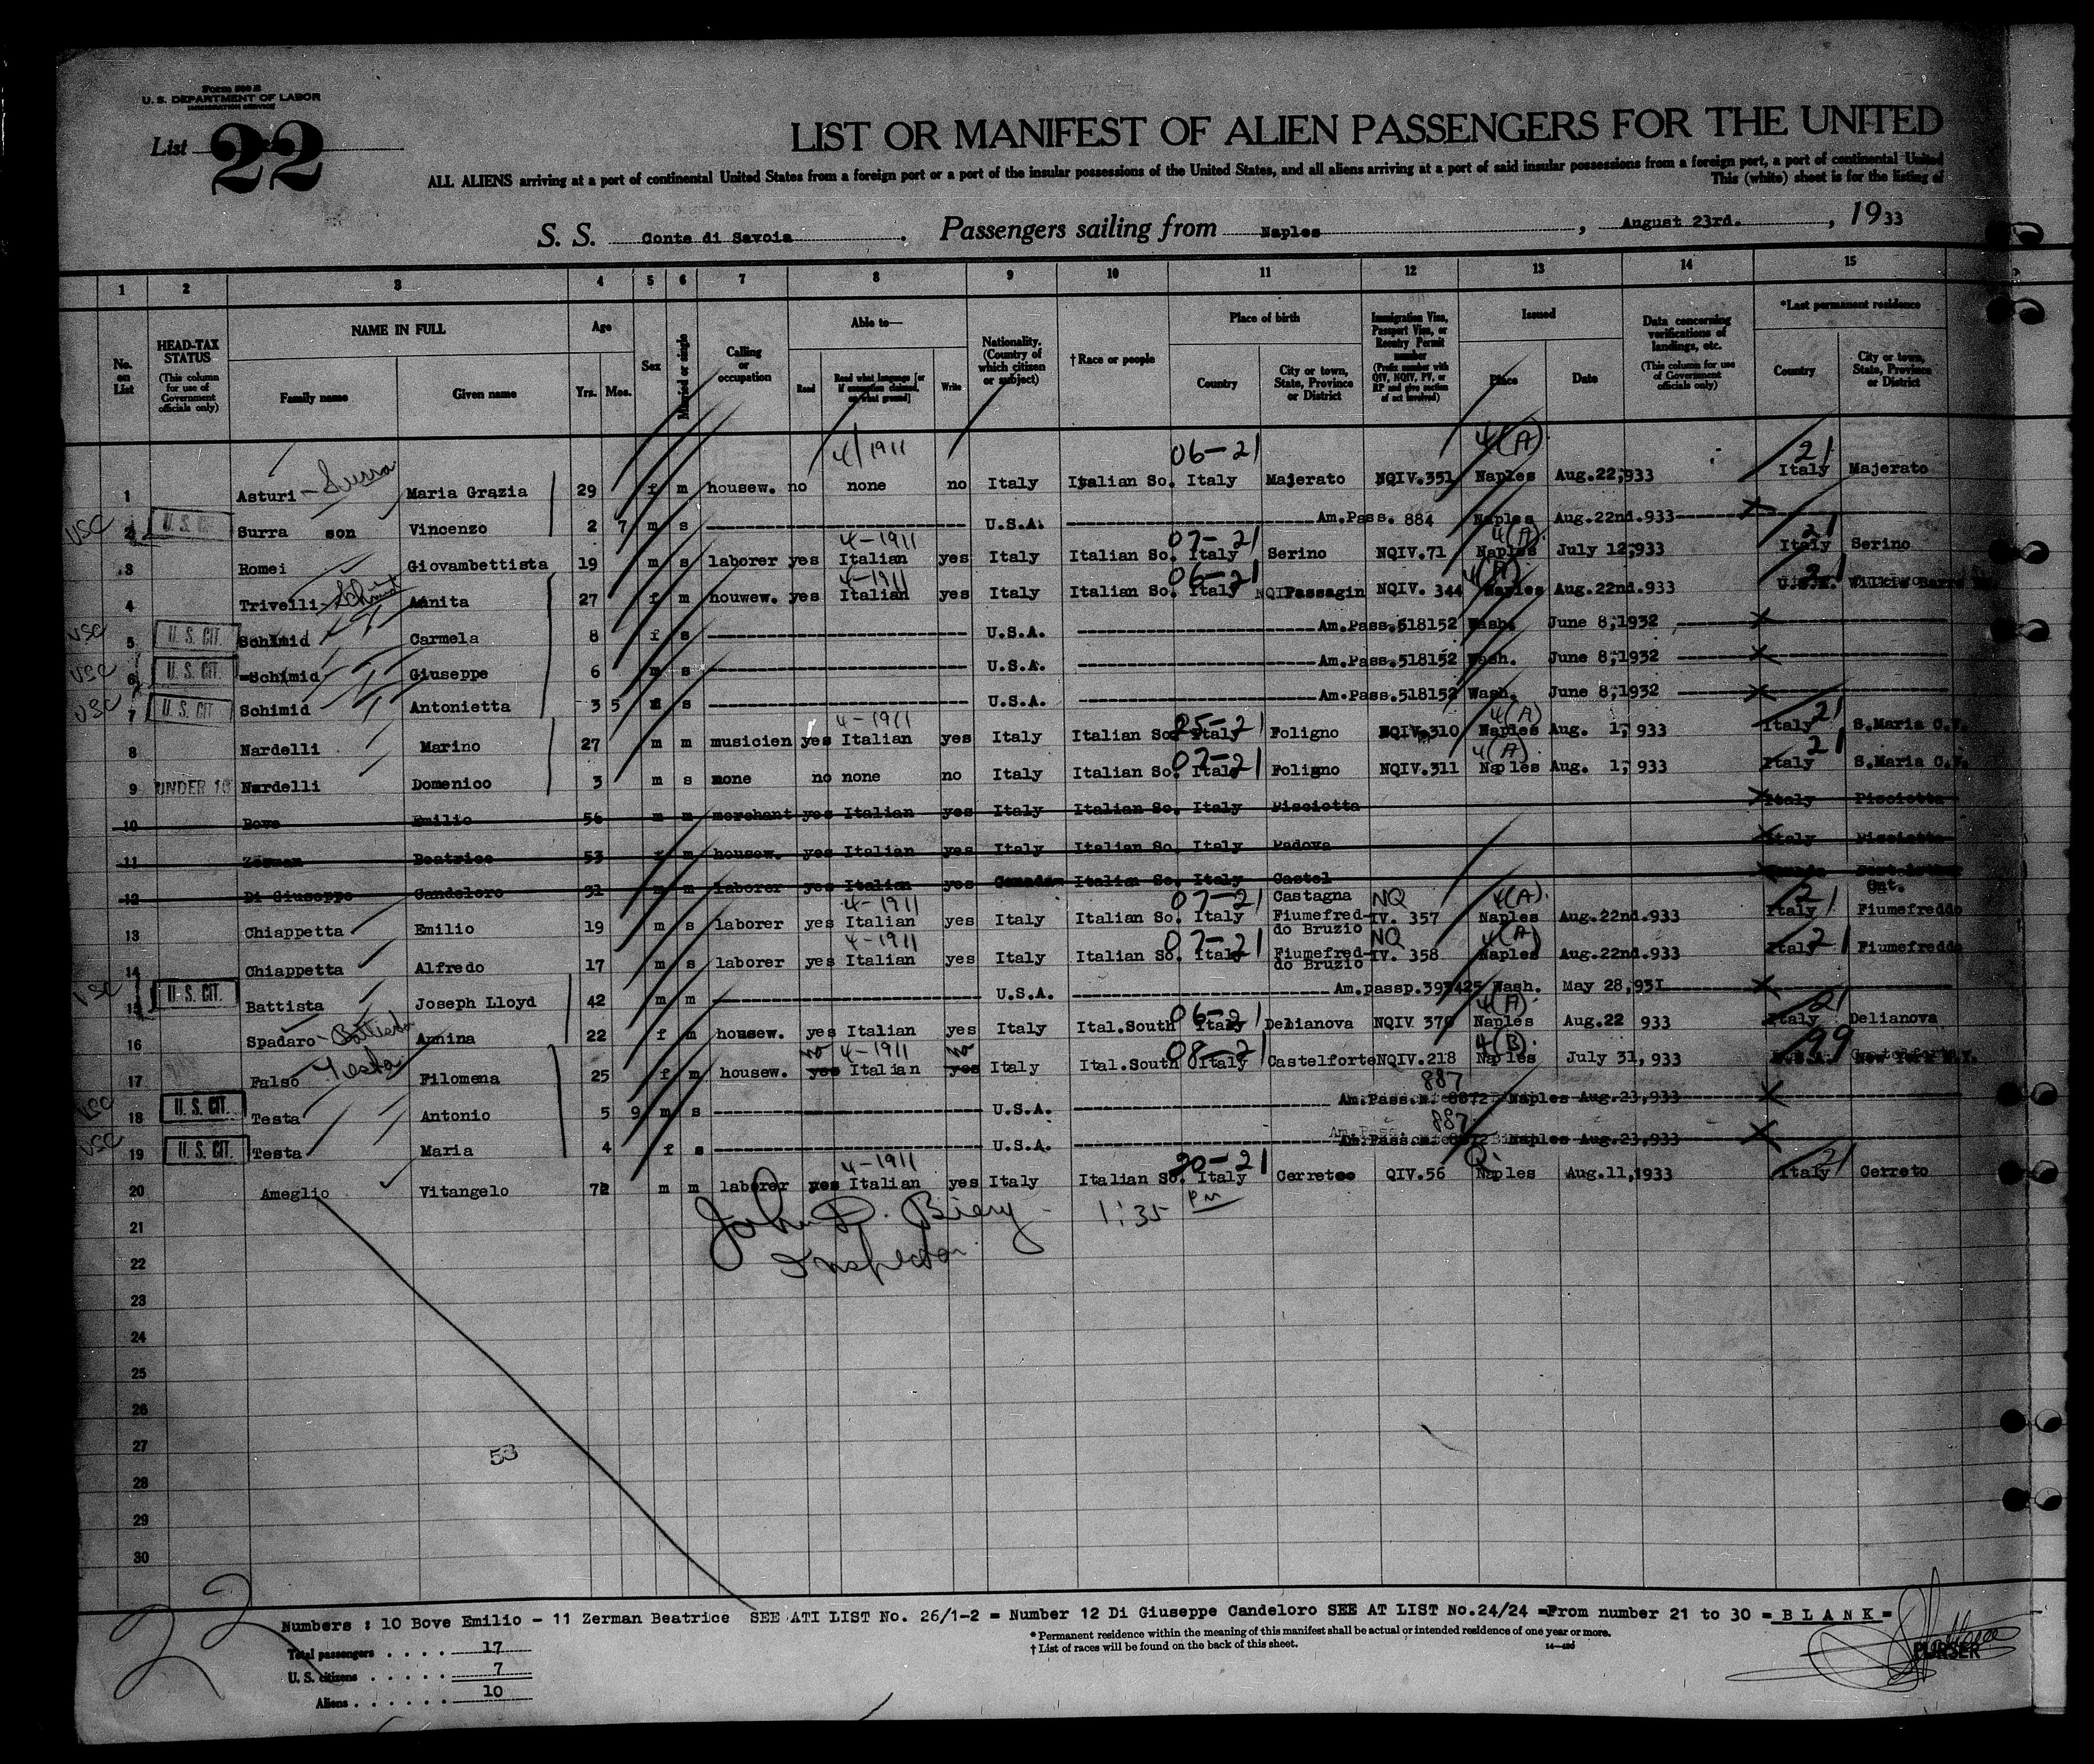 Form 500 B
U. S. DEPARTMENT OF LABOR
IMMIGRATION SERVICE
List 22
LIST OR MANIFEST OF ALIEN PASSENGERS FOR THE UNITED
ALL ALIENS arriving at a port of continental United States from a foreign port or a port of the insular possessions of the United States, and all aliens arriving at a port of said insular possessions from a foreign port, a port of continental United
This (white) sheet is for the listing of
S. S. Conte di Savoia. Passengers sailing from Naples, August 23rd., 1933
1 2 3 4 5 6 7 8 9 10 11 12 13 14 15
No. on List
HEAD-TAX STATUS (This column for use of Government officials only)
NAME IN FULL
Family name
Given name
Age
Yrs. Mos.
Sex
Married or single
Calling or occupation
Able to—
Read
Read what language [or if exemption claimed, on what ground]
Write
Nationality. (Country of which citizen or subject)
†Race or people
Place of birth
Country
City or town, State, Province or District
Immigration Visa, Passport Visa, or Reentry Permit number (Prefix number with QIV, NQIV, PV, or RP and give section of act involved)
Issued
Place
Date
Data concerning verifications of landings, etc. (This column for use of Government officials only)
*Last permanent residence
Country
City or town, State, Province or District
4/1911 06-21 4(A) 21
1 Asturi - Surra Maria Grazia 29 f m housew. no none no Italy Italian So. Italy Majerato NQIV.351 Naples Aug.22,933 Italy Majerato
USC 2 U. S. CIT. Surra son Vincenzo 2 7 m s U.S.A. Am.Pass. 884 Naples Aug.22nd.933
4-1911 07-21 4(A) 21
3 Romei Giovambettista 19 m s laborer yes Italian yes Italy Italian So. Italy Serino NQIV.71 Naples July 12,933 Italy Serino
4-1911 06-21 4(A) 21
4 Trivelli- Anita 27 f m houwew. yes Italian yes Italy Italian So. Italy Passagin NQIV. 344 Naples Aug.22nd.933 U.S.A.
USC 5 U. S. CIT. Schimid Carmela 8 f s U.S.A. Am.Pass.518152 Wash. June 8,1932
USC 6 U. S. CIT. Schimid Giuseppe 6 m s U.S.A. Am.Pass.518152 Wash. June 8,1932
USC 7 U. S. CIT Schimid Antonietta 3 5 s U.S.A. Am.Pass.518152 Wash. June 8,1932
4-1911 05-21 4(A) 21
8 Nardelli Marino 27 m m musicien yes Italian yes Italy Italian So. Italy Foligno NQIV.310 Naples Aug. 1, 933 Italy S.Maria C.V.
07-21 4(A) 21
9 UNDER 16 Nardelli Domenico 3 m s none no none no Italy Italian So. Italy Foligno NQIV.311 Naples Aug. 1, 933 Italy S.Maria C.V.
10 Bove Emilio 56 m m merchant yes Italian yes Italy Italian So. Italy Pisciotta Italy Pisciotta
11 Zerman Beatrice 53 f m housew. yes Italian yes Italy Italian So. Italy Padova Italy Pisciotta
12 Di Giuseppe Candeloro 31 m m laborer yes Italian yes Italian So. Italy Castel Castagna Ont.
4-1911 07-21 4(A) 21
13 Chiappetta Emilio 19 m s laborer yes Italian yes Italy Italian So. Italy Fiumefreddo Bruzio NQ IV. 357 Naples Aug.22nd.933 Italy Fiumefreddo
4-1911 07-21 4(A) 21
14 Chiappetta Alfredo 17 m s laborer yes Italian yes Italy Italian So. Italy Fiumefreddo Bruzio NQ IV. 358 Naples Aug.22nd.933 Italy Fiumefreddo
USC 15 U. S. CIT. Battista Joseph Lloyd 42 m m U.S.A. Am.passp.393425 Wash. May 28,931
06-21 4(A) 21
16 Spadaro - Battista Annina 22 f m housew. yes Italian yes Italy Ital.South Italy Delianova NQIV 370 Naples Aug.22 933 Italy Delianova
no 4-1911 no 08-21 4(B) 99
17 Falso Testa Filomena 25 f m housew. yes Italian yes Italy Ital.South Italy Castelforte NQIV.218 Naples July 31, 933 U.S.A. New York N.Y.
887
USC 18 U. S. CIT. Testa Antonio 5 9 m s U.S.A. Am.Pass. Naples Aug.23,933
887
USC 19 U. S. CIT. Testa Maria 4 f s U.S.A. Am.Pass. Naples Aug.23,933
4-1911 20-21 Q. 21
20 Ameglio Vitangelo 72 m m laborer yes Italian yes Italy Italian So. Italy Cerreto QIV.56 Naples Aug.11,1933 Italy Cerreto
John P. Biery 1:35 PM
Inspector
21
22
23
24
25
26
27
28
29
30
53
22
Numbers : 10 Bove Emilio - 11 Zerman Beatrice SEE ATI LIST No. 26/1-2 = Number 12 Di Giuseppe Candeloro SEE AT LIST No.24/24 =From number 21 to 30 = B L A N K =
* Permanent residence within the meaning of this manifest shall be actual or intended residence of one year or more.
† List of races will be found on the back of this sheet.
Total passengers . . . . 17
U. S. citizens . . . . . 7
Aliens . . . . . . 10
PURSER